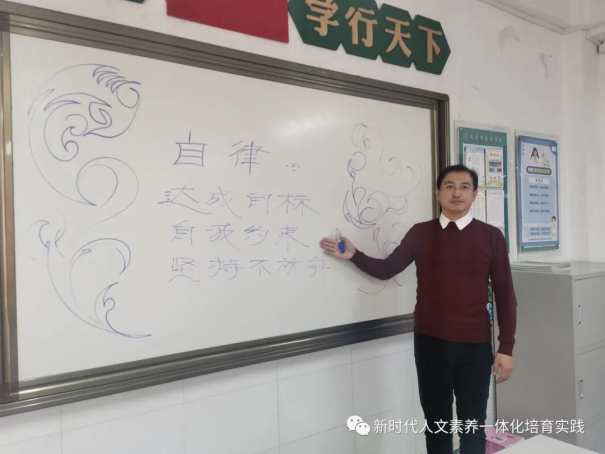 学行天下
自律
达成目标
自我约束
坚持不放弃
新时代人文素养一体化培育实践